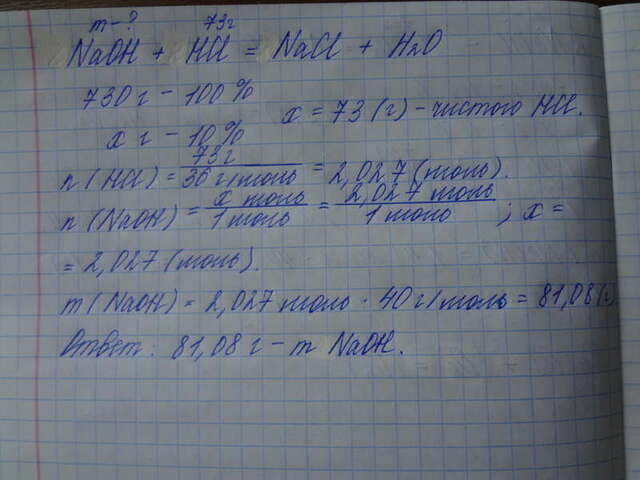 m-? 73г
NaOH + HCl = NaCl + H₂O
730 г - 100 %
x г - 10 %
x = 73 (г) - чистого HCl.
n (HCl) = 73г / 36 г/моль = 2,027 (моль).
n (NaOH) = x моль / 1 моль = 2,027 моль / 1 моль ; x =
= 2,027 (моль).
m (NaOH) = 2,027 моль · 40 г/моль = 81,08 (г
Ответ: 81,08 г - m NaOH.